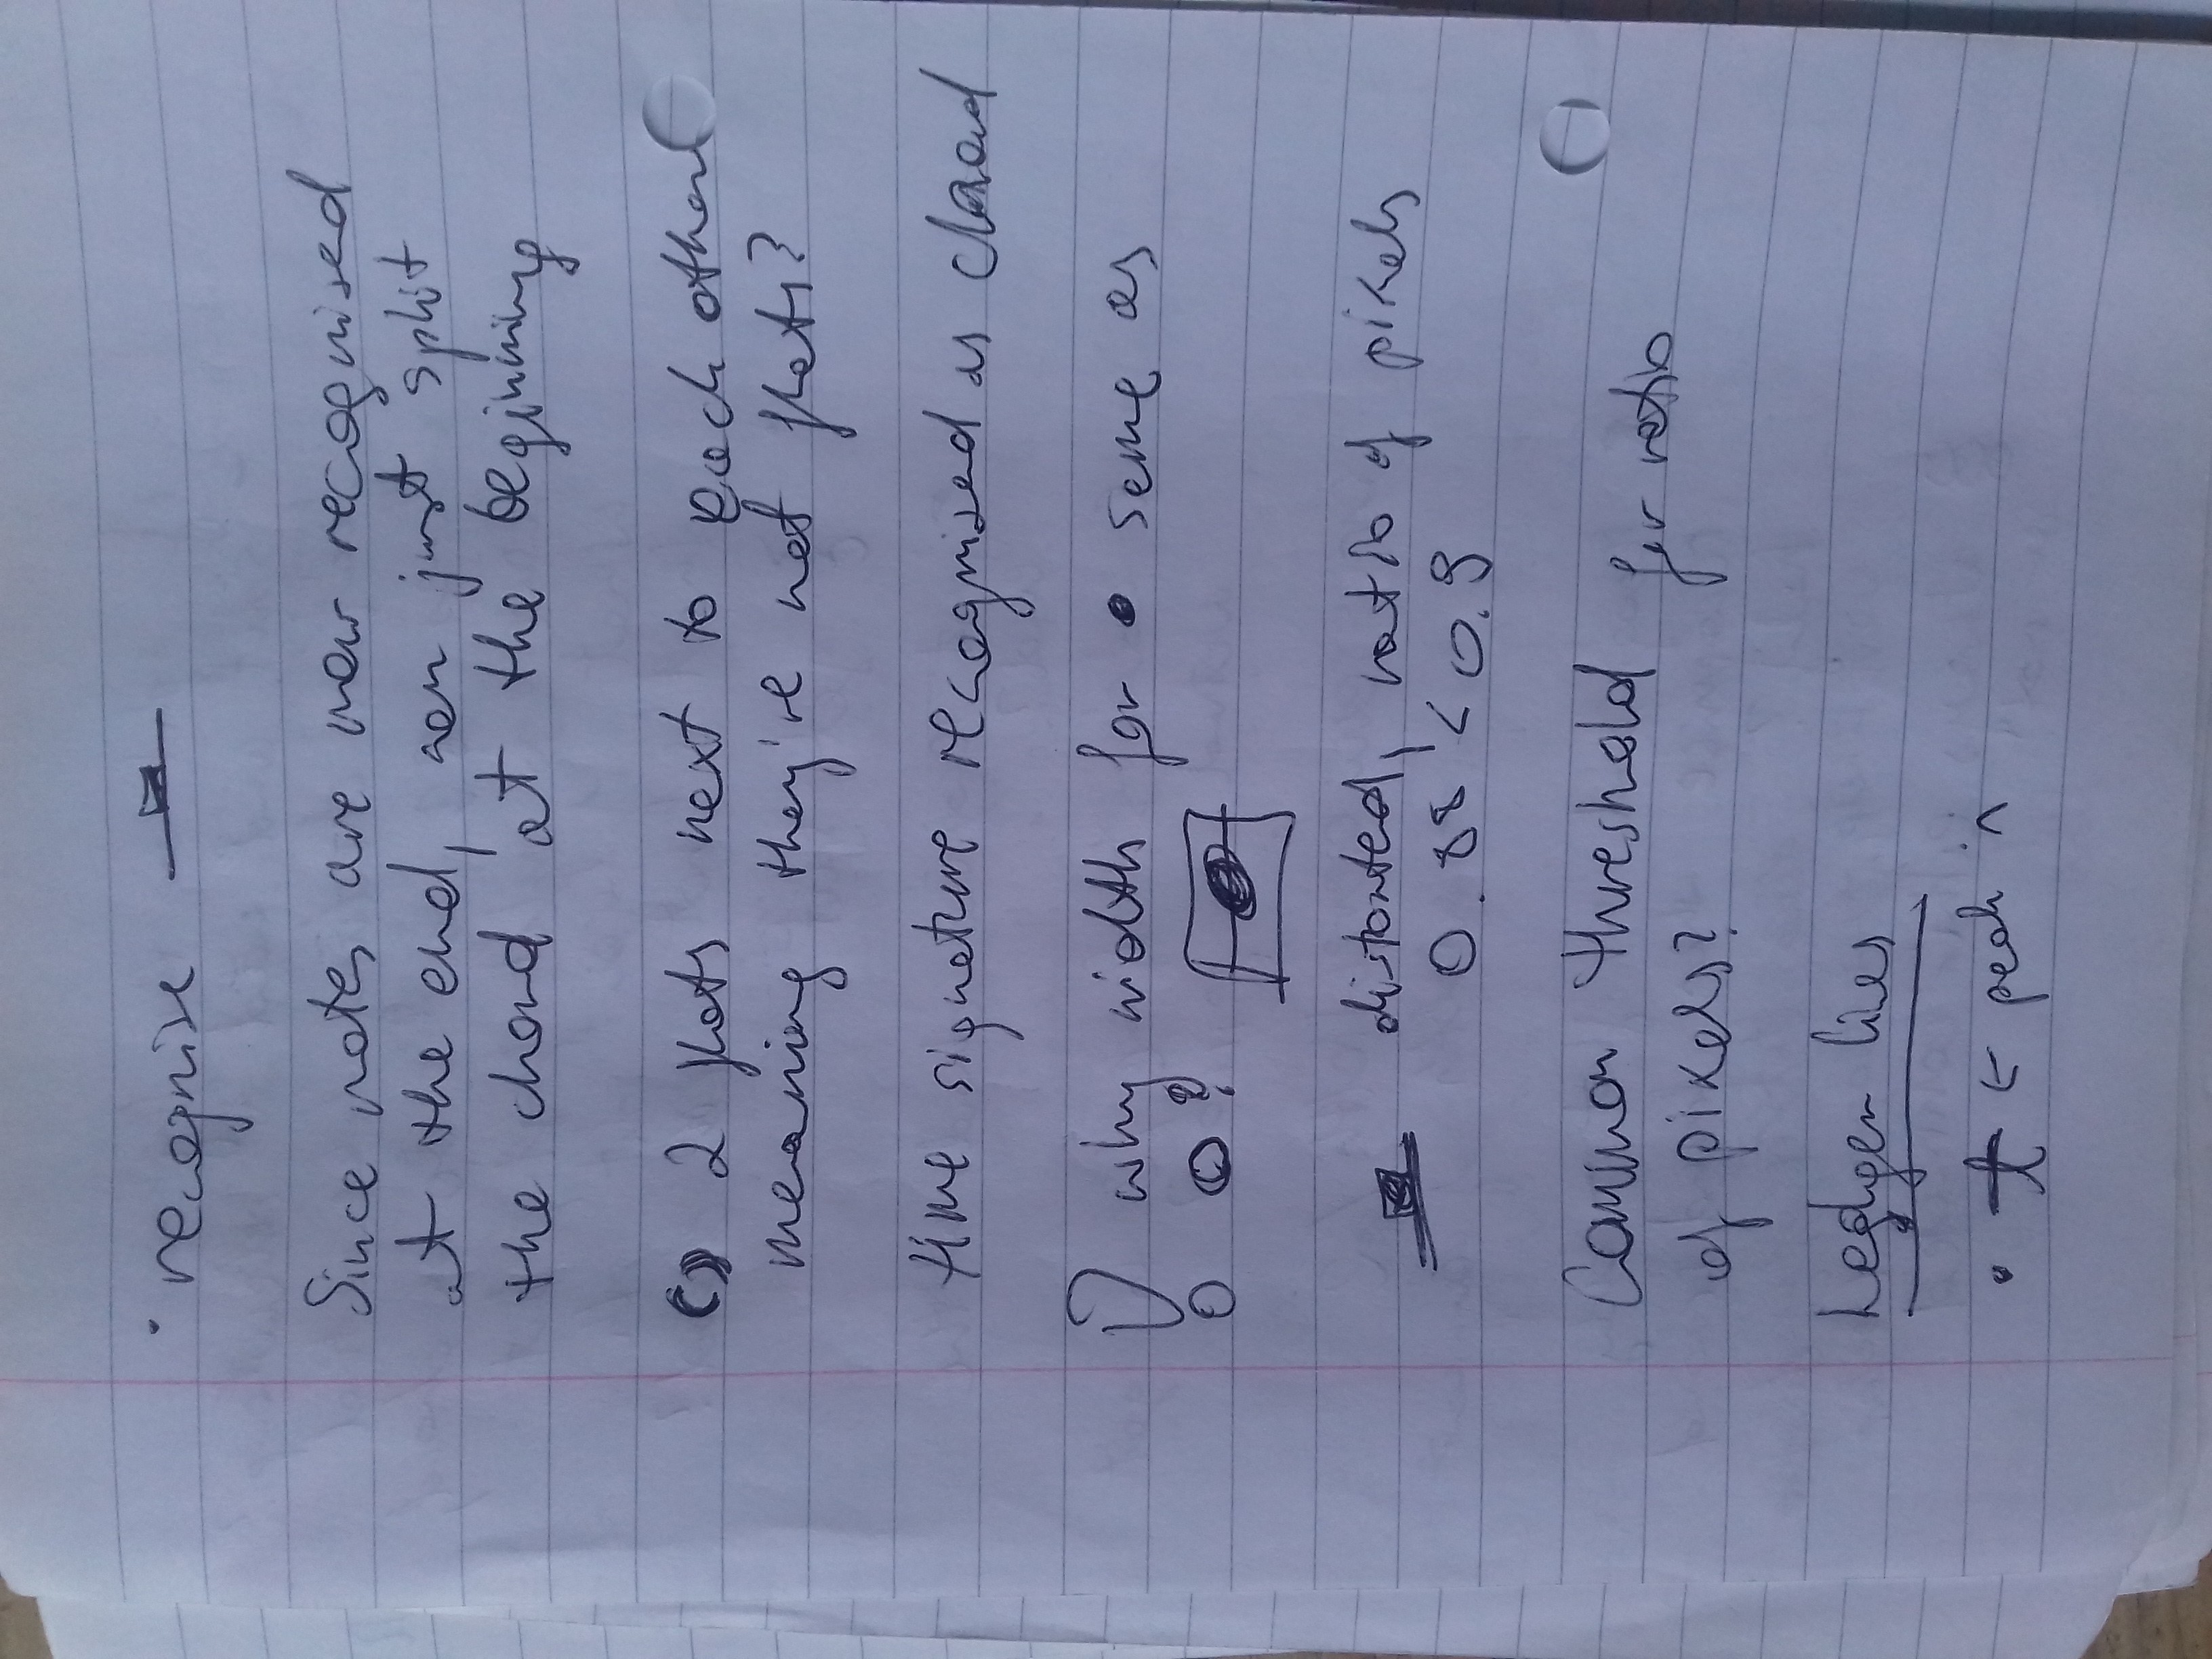 · recognise
Since notes are now recognised
at the end, can just split
the chord at the beginning
2 flats next to each other
meaning they're not flats?
time signature recognised as closed
! why width for • same as
o?
distorted, ratio of pixels
0.88 < 0.9
Common threshold for ratio
of pixels?
Ledger lines
• t ← peak in